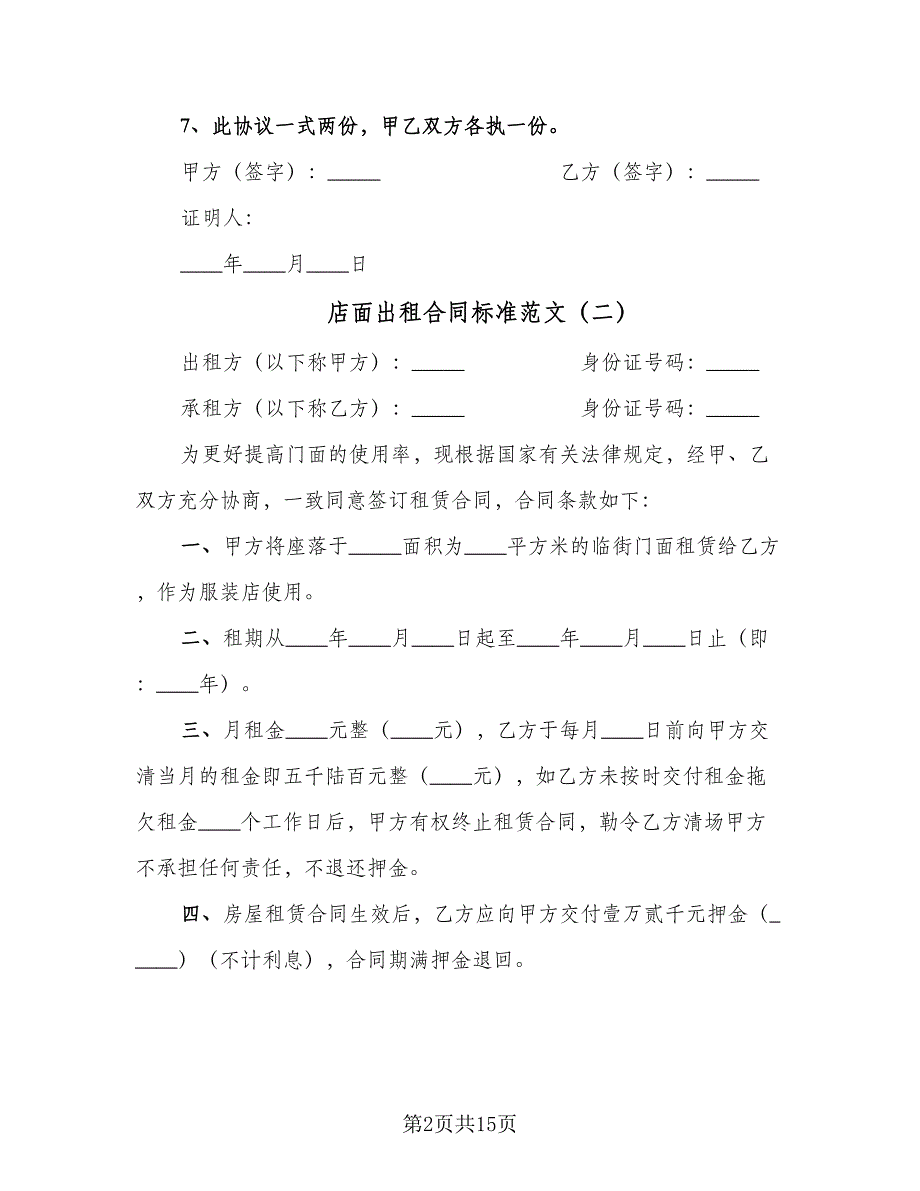 7、此协议一式两份，甲乙双方各执一份。
甲方（签字）：_____ 乙方（签字）：_____
证明人：
____年____月____日
店面出租合同标准范文（二）
出租方（以下称甲方）：_____ 身份证号码：_____
承租方（以下称乙方）：_____ 身份证号码：_____
为更好提高门面的使用率，现根据国家有关法律规定，经甲、乙
双方充分协商，一致同意签订租赁合同，合同条款如下：
一、甲方将座落于_____面积为____平方米的临街门面租赁给乙方
，作为服装店使用。
二、租期从____年____月____日起至____年____月____日止（即
：____年）。
三、月租金____元整（____元），乙方于每月____日前向甲方交
清当月的租金即五千陆百元整（____元），如乙方未按时交付租金拖
欠租金____个工作日后，甲方有权终止租赁合同，勒令乙方清场甲方
不承担任何责任，不退还押金。
四、房屋租赁合同生效后，乙方应向甲方交付壹万贰千元押金（_
____）（不计利息），合同期满押金退回。
第2页共15页